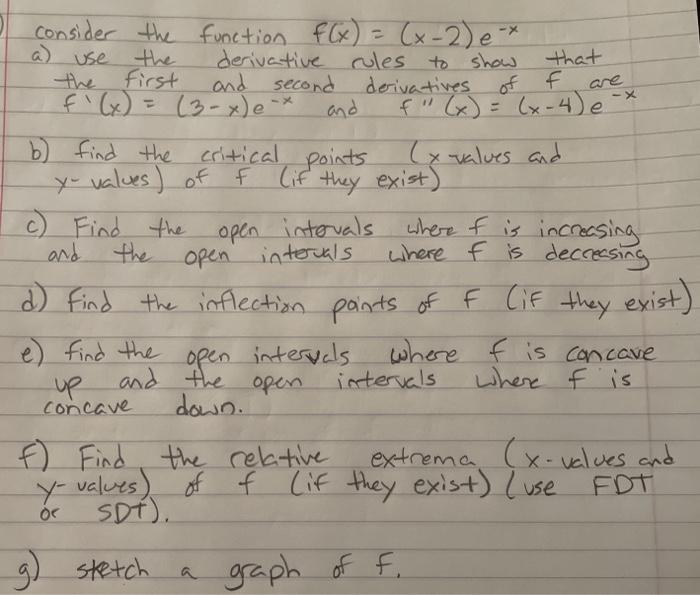 consider the function f(x) = (x-2)e^-x
a) use the derivative rules to show that
the first and second derivatives of f are
f'(x) = (3-x)e^-x and f"(x) = (x-4)e^-x
b) find the critical points (x-values and
y-values) of f (if they exist)
c) Find the open intervals where f is increasing
and the open intervals where f is decreasing
d) find the inflection points of f (if they exist)
e) find the open intervals where f is concave
up and the open intervals where f is
concave down.
f) Find the relative extrema (x-values and
y-values) of f (if they exist) (use FDT
or SDT).
g) sketch a graph of f.